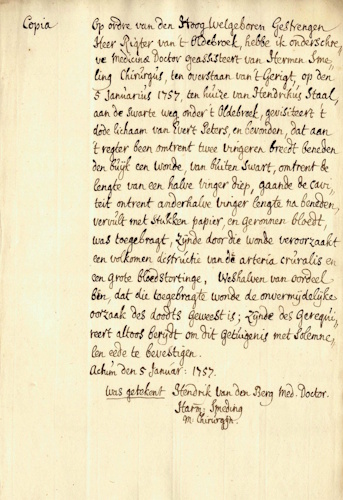 Copia
Op ordre van den Hoog Welgeboren Gestrengen
Heer Rigter van 't Oldebroek, hebbe ik onderschre,
ve Medicinæ Doctor geassisteert van Hermen Sme,
ling Chirurgus, ten overstaan van 't Gerigt, op den
5 Januarius 1757, ten huize van Hendrikus Staal,
aan de Swarte weg onder 't Oldebroek, gevisiteert 't
dode lichaam van Evert Peters, en bevonden, dat aan
't regter been omtrent twee vingeren breedt beneden
den buyk een wonde, van buiten swart, omtrent de
lengte van een halve vinger diep, gaande de cavi,
teit ontrent anderhalve vinger lengte na beneden,
vervult met stukken papier, en geronnen bloedt,
was toegebragt, zijnde door die wonde veroorzaakt
een volkomen destructie van de arteria cruralis en
een grote bloedstortinge, Weshalven van oordeel
ben, dat die toegebragte wonde de onvermydelyke
oorzaak des doodts geweest is; zijnde des Gerequi,
reert altoos bereydt om dit Getuigenis met Solemne,
len eede te bevestigen.
Actum den 5 Januar: 1757.
was getekent Hendrik van den Berg Med. Doctor.
Harm: Smeding
M: Chirurgyn